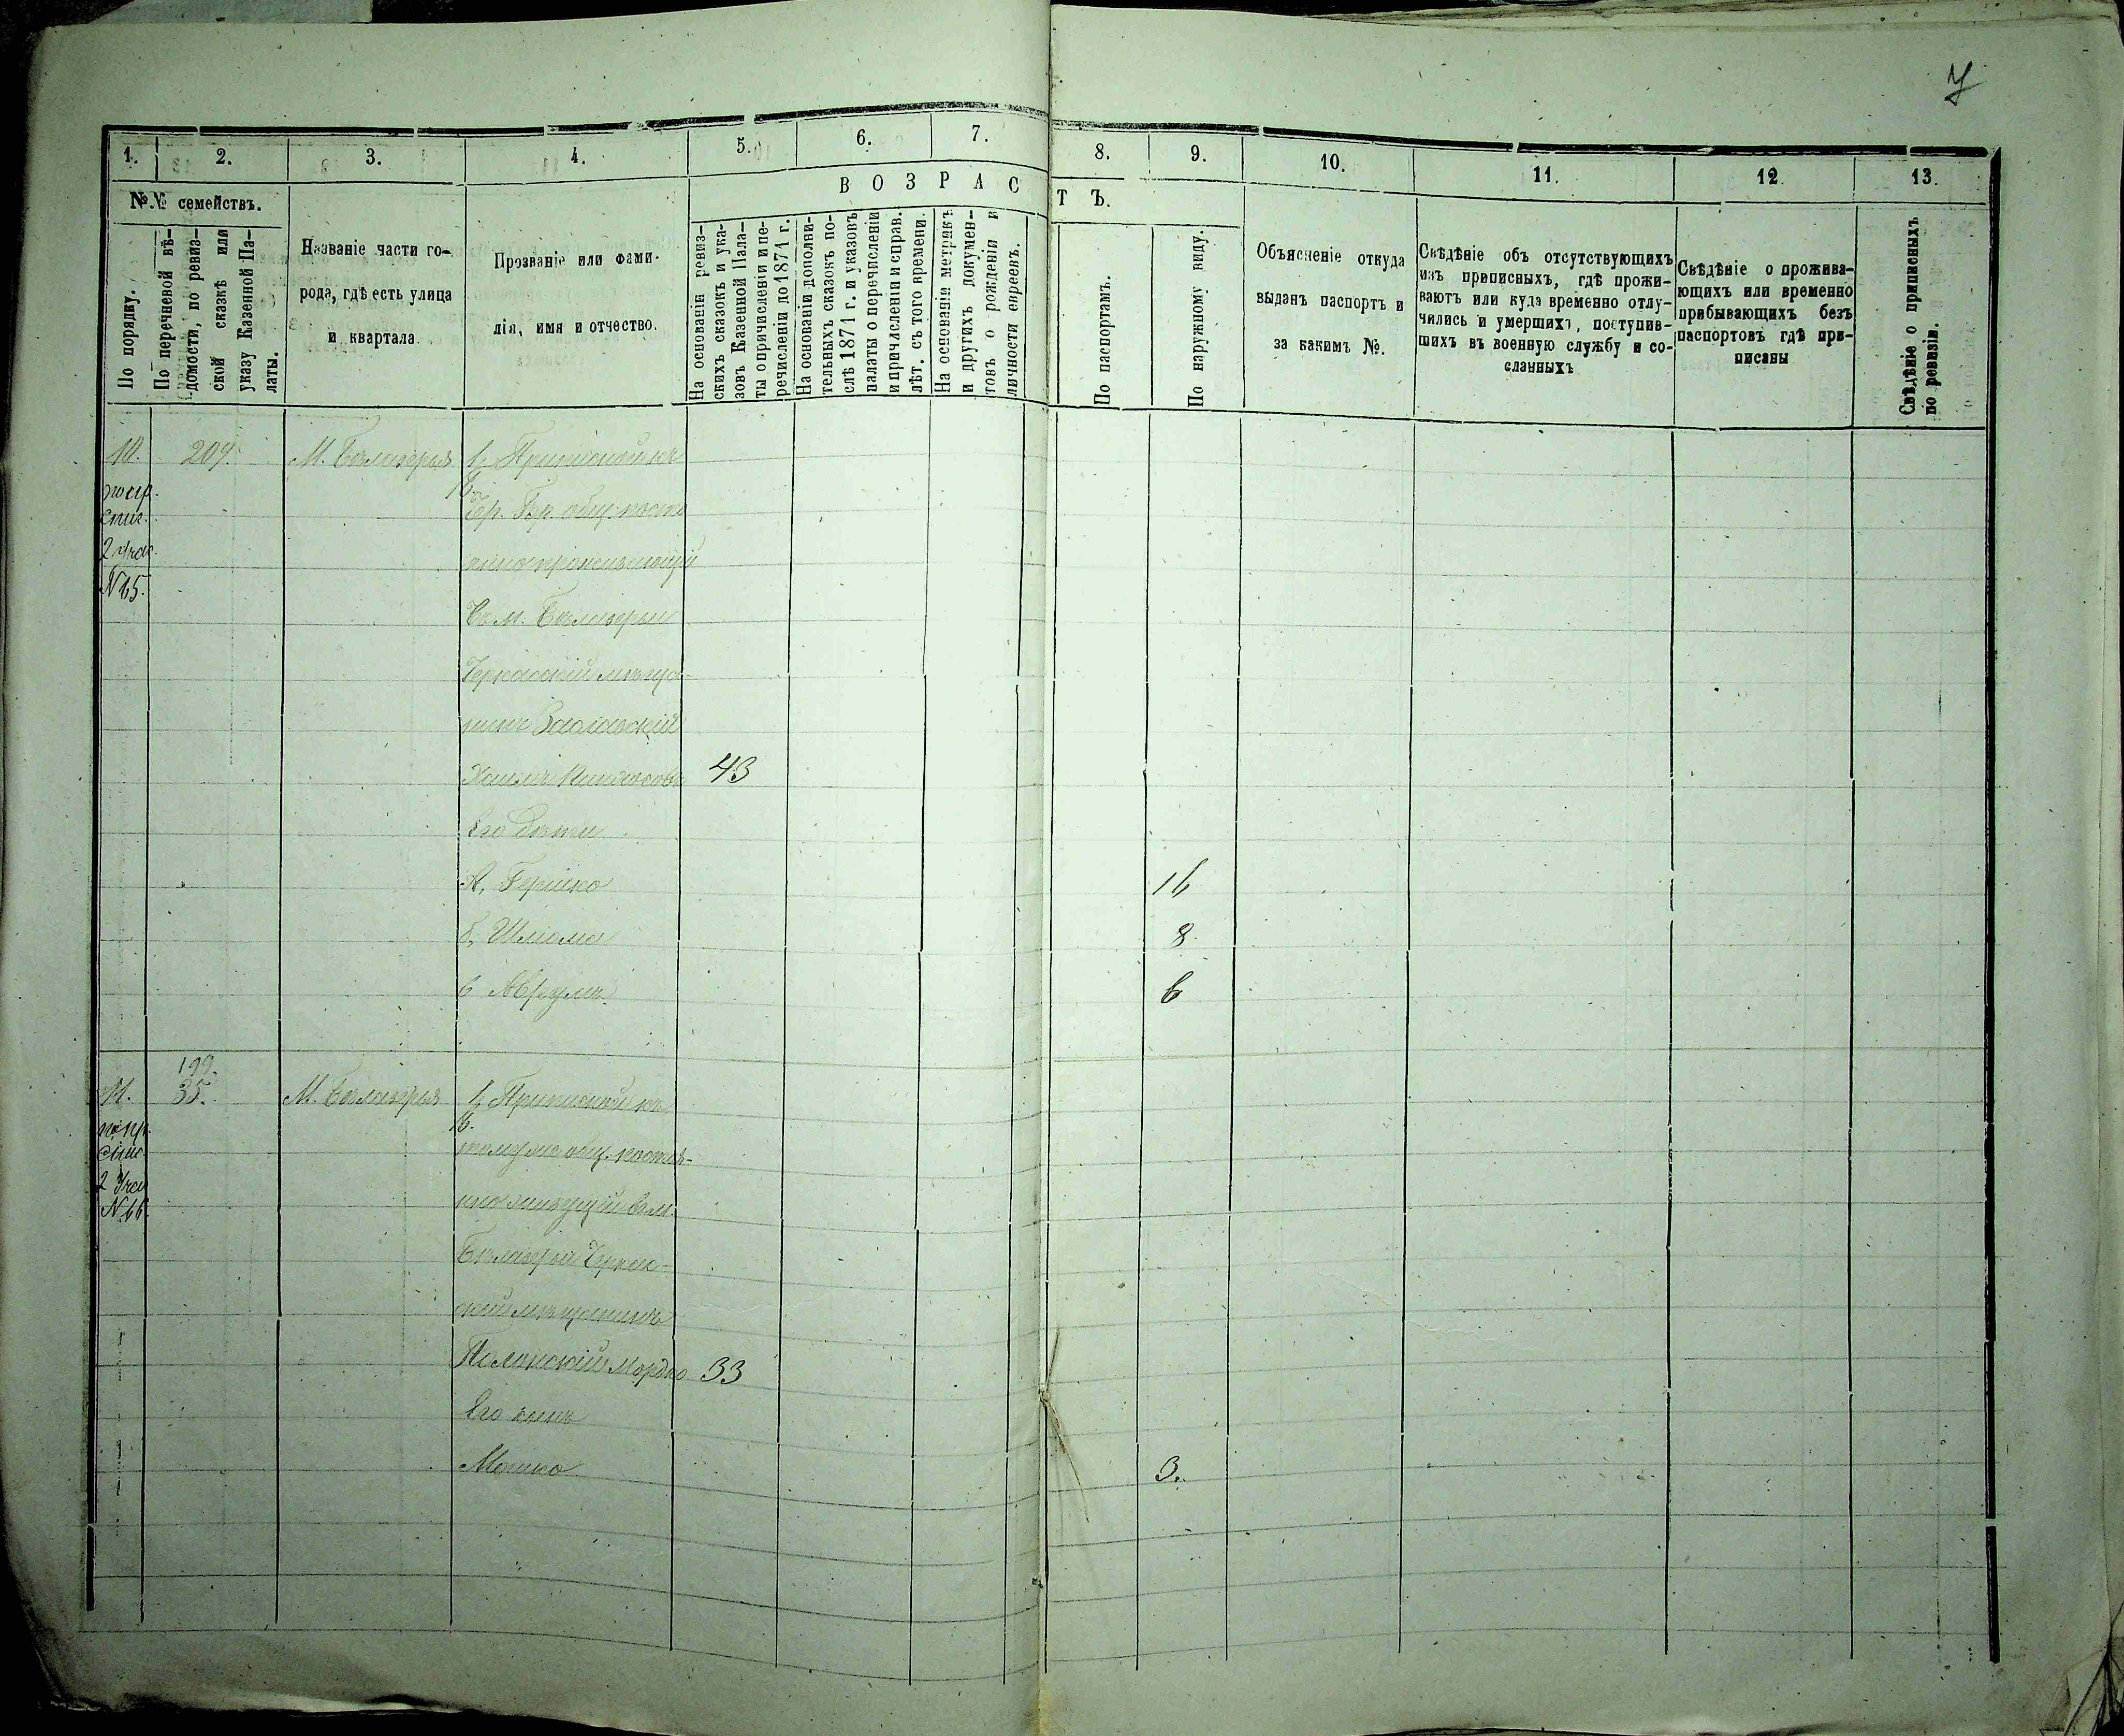 7
1. 2. 3. 4. 5. 6. 7. 8. 9. 10. 11. 12. 13.
№№ семействъ.
ВОЗРАСТЪ.
По порядку.
По перечневой вѣ-
домости, по ревиз-
ской сказкѣ или
указу Казенной Па-
латы.
Названіе части го-
рода, гдѣ есть улица
и квартала.
Прозваніе или фами-
лія, имя и отчество.
На основаніи ревиз-
скихъ сказокъ и ука-
зовъ Казенной Пала-
ты о причисленіи и пе-
речисленіи до 1871 г.
На основаніи дополни-
тельныхъ сказокъ по-
слѣ 1871 г. и указовъ
палаты о перечисленіи
и причисленіи и справ.
лѣт. съ того времени.
На основаніи метрикъ
и другихъ докумен-
товъ о рожденіи и
личности евреевъ.
По паспортамъ.
По наружному виду.
Объясненіе откуда
выданъ паспортъ и
за какимъ №.
Свѣдѣніе объ отсутствующихъ
изъ приписныхъ, гдѣ прожи-
ваютъ или куда временно отлу-
чились и умершихъ, поступив-
шихъ въ военную службу и со-
сланныхъ
Свѣдѣніе о прожива-
ющихъ или временно
прибывающихъ безъ
паспортовъ гдѣ при-
писаны
Свѣдѣніе о приписныхъ
по ревизіи.
10. 209. М. Бѣлозерья 1, Приписной къ
Чр. Евр. общ. посто
янно проживающій
въ м. Бѣлозерьи
Черкасскій мѣща-
нинъ Заславскій
Хаимъ Пинхасовъ 43
Его дѣти
А, Гершко 16
б, Шлиома 8.
в Аврумъ 6
2 Учас.
N 65.
199.
11. 35. М. Бѣлозерья 1, Приписной къ
тому же общ. постоя-
нно живущій въ м.
Бѣлозерьи Черкас-
скій мѣщанинъ
Полянскій Мордко 33
Его сынъ
Мошко 3.
2 Учас
N 66.